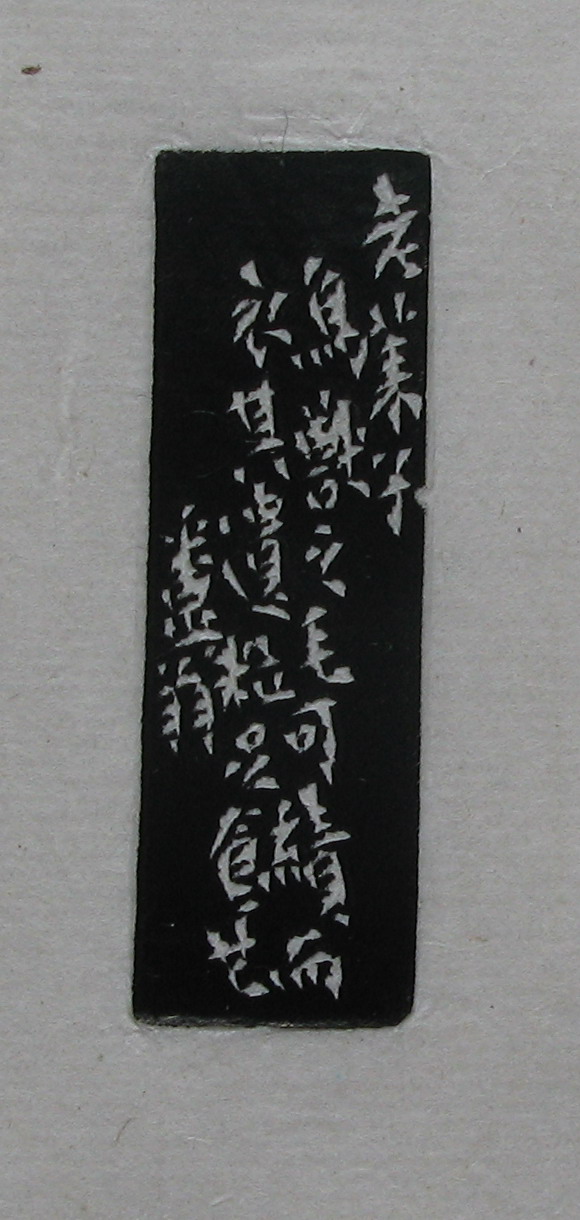 老萊子
鳥獸之毛可績而
衣其遺粒足食
翁